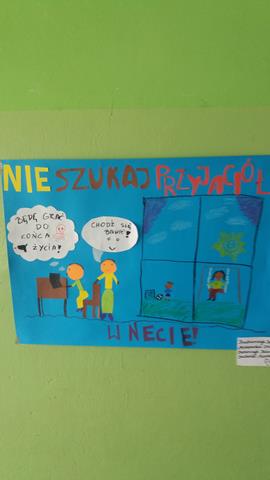 NIE SZUKAJ PRZYJACIÓŁ
BĘDĘ GRAĆ
DO
KOŃCA
ŻYCIA!
CHODŹ SIĘ
BAWIĆ!
W NECIE!